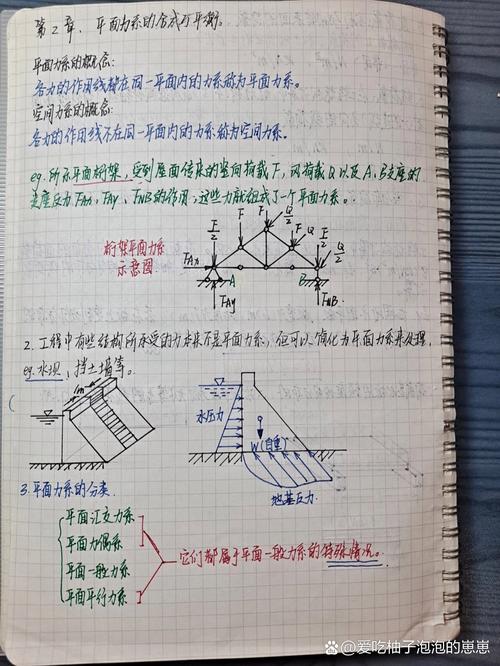 第2章、平面力系的合成与平衡。
平面力系的概念:
各力的作用线都在同一平面内的力系称为平面力系。
空间力系的概念:
各力的作用线不在同一平面内的力系称为空间力系。
eg:所示平面桁架,受到屋面传来的竖向荷载F,风荷载Q以及A、B支座的
支座反力FAx、FAy、FNB的作用,这些力就组成了一个平面力系。
F/2 F F Q/2 F Q F/2 Q/2
桁架平面力系
示意图
FAx A B
FAy FNB
2.工程中有些结构所承受的力本来不是平面力系,但可以简化为平面力系来处理,
eg:水坝、挡土墙等。
1m
水压力
W(自重)
地基反力
3.平面力系的分类
平面汇交力系
平面力偶系
平面一般力系
平面平行力系
它们都属于平面一般力系的特殊情况。
@爱吃柚子泡泡的崽崽